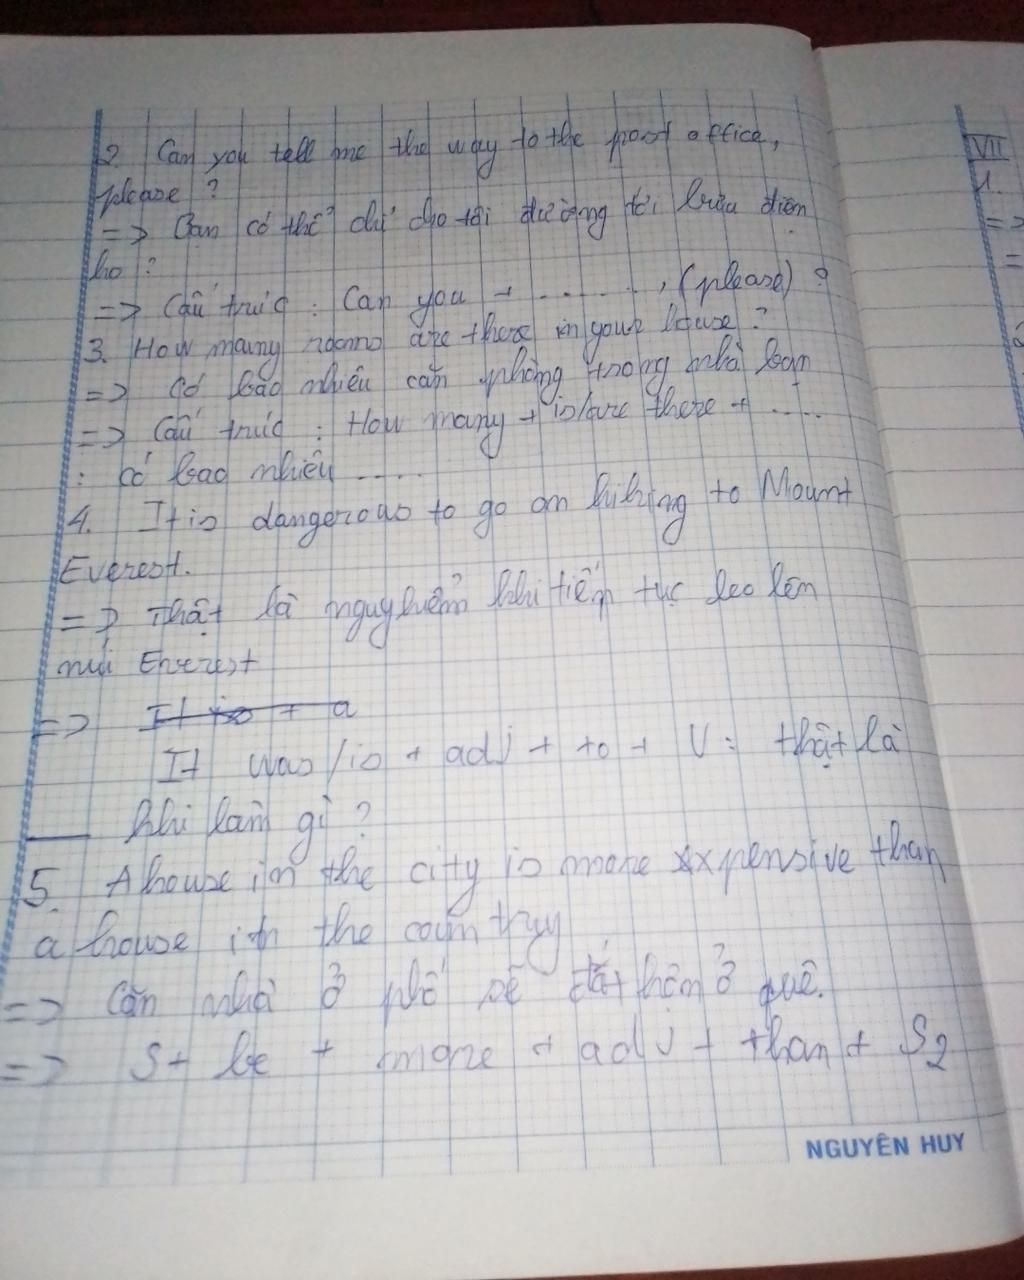 2. Can you tell me the way to the post office,
please ?
=> Bạn có thể chỉ cho tôi đường tới bưu điện
ko ?
=> Cấu trúc : Can you + ........, (please) ?
3. How many rooms are there in your house ?
=> Có bao nhiêu căn phòng trong nhà bạn
=> Cấu trúc : How many + is/are there + .....
: có bao nhiêu .....
4. It is dangerous to go on hiking to Mount
Everest.
=> Thật là nguy hiểm khi tiếp tục leo lên
núi Everest
=> It is + a
It was/is + adj + to + V : thật là
___ khi làm gì ?
5. A house in the city is more expensive than
a house in the country
=> Căn nhà ở phố sẽ đắt hơn ở quê.
=> S + be + more + adj + than + S2
NGUYÊN HUY
VII
1.
=>
=